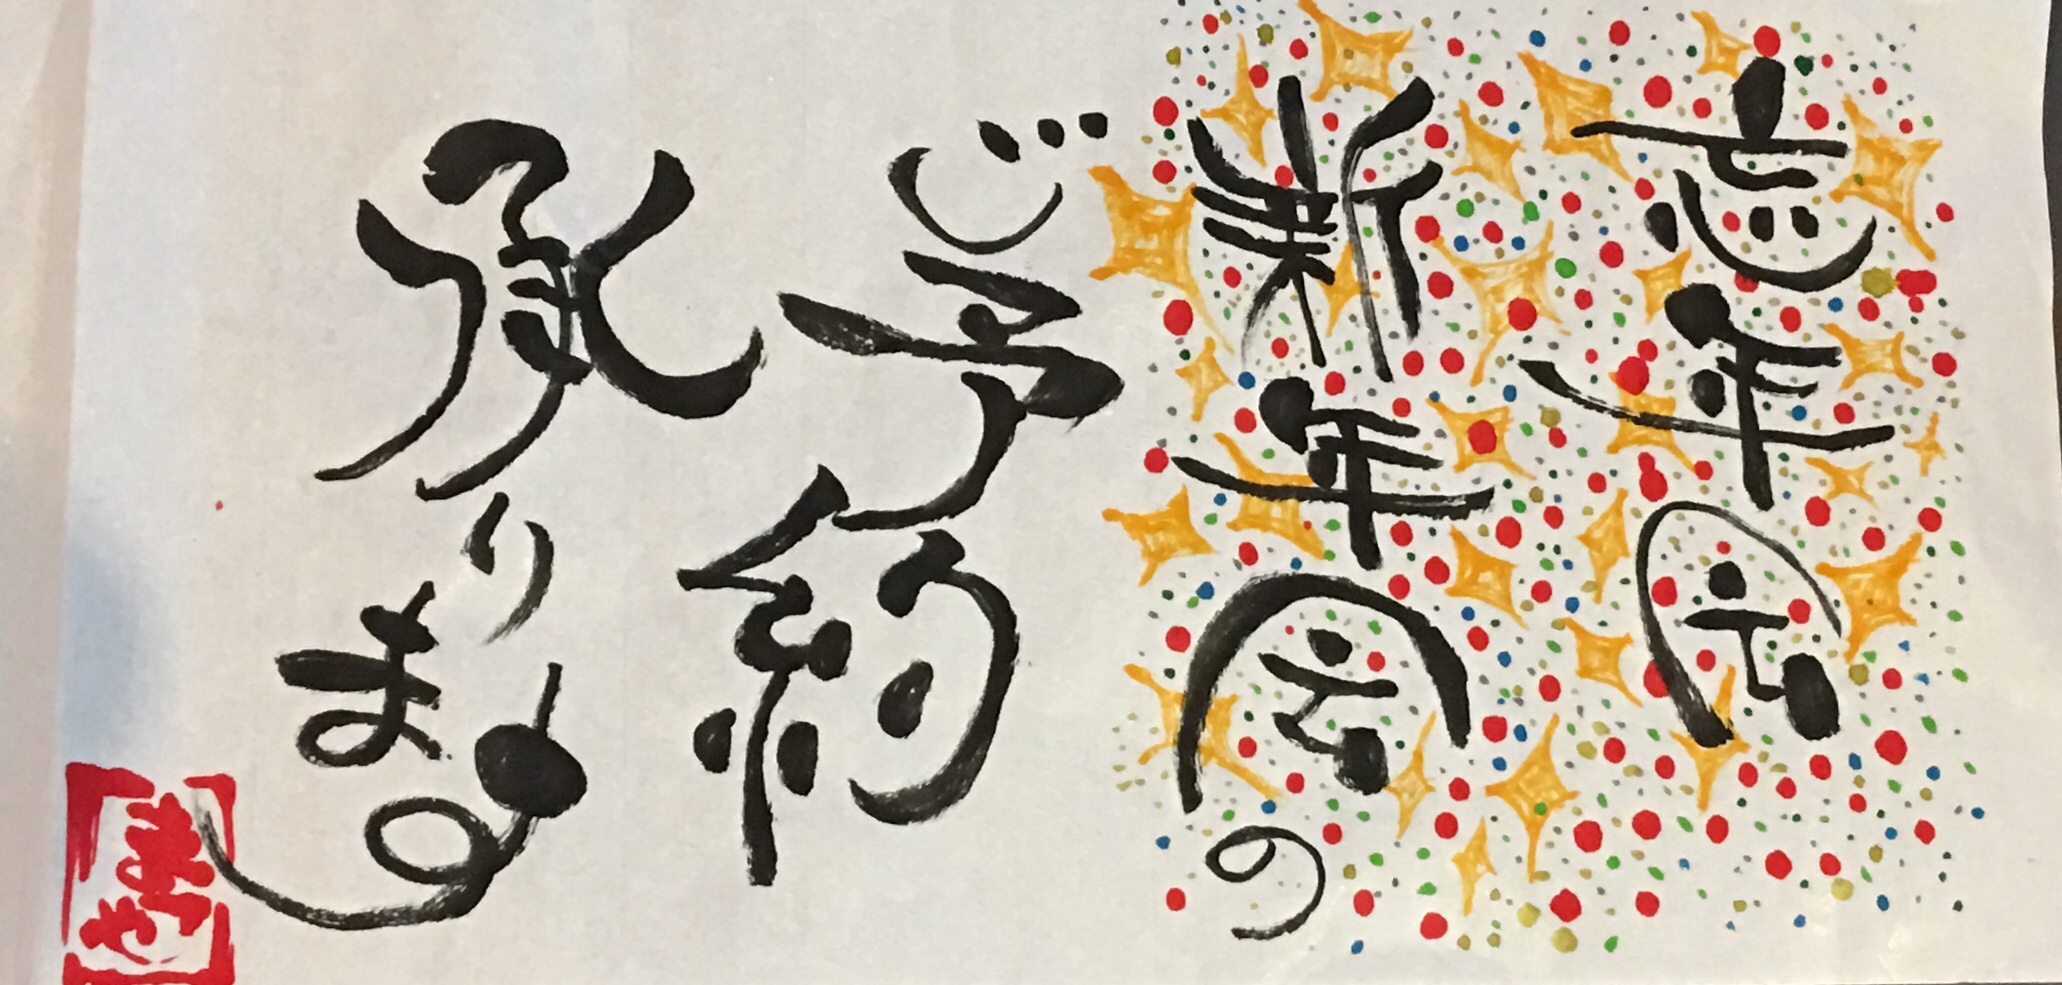 忘年会
新年会の
ご予約
承ります
まっせ